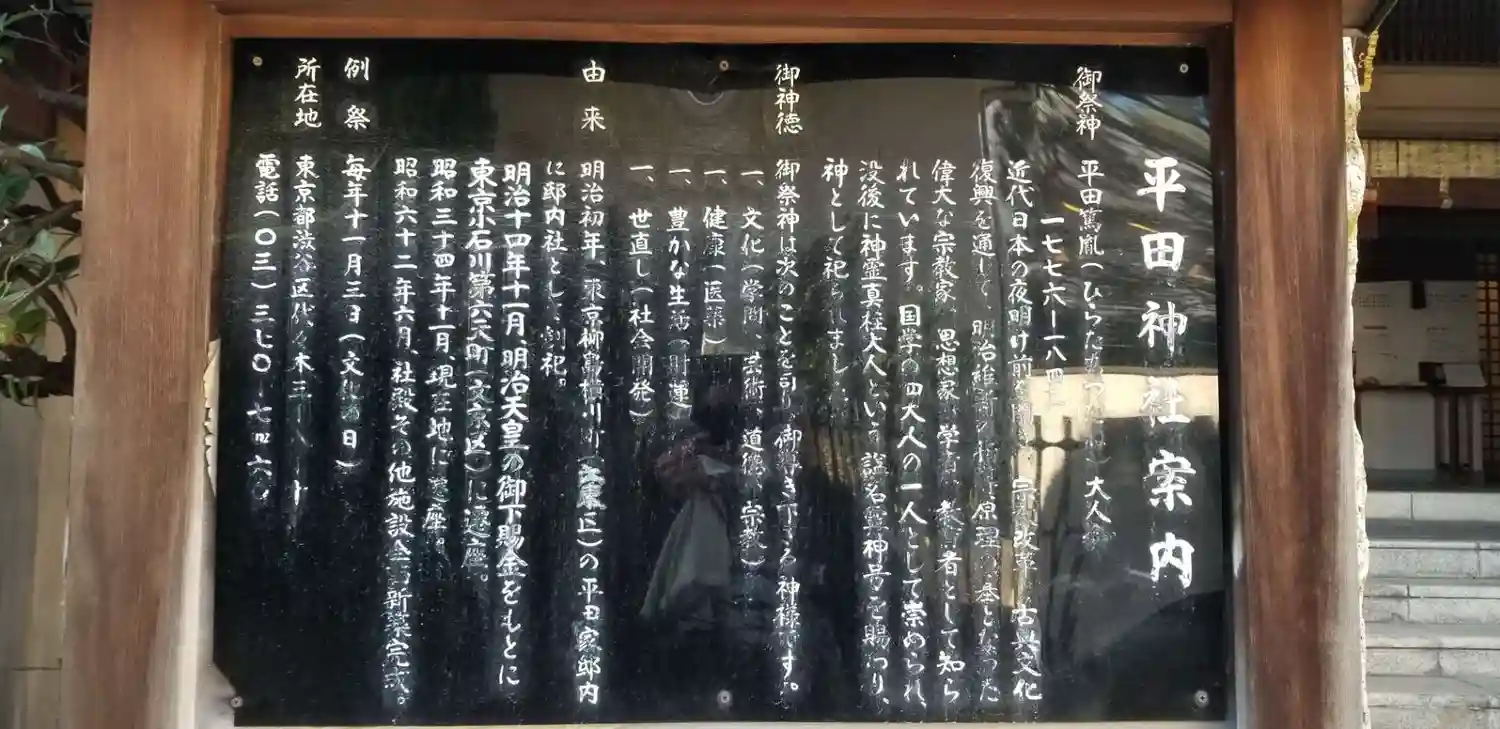 平田神社案内
御祭神　平田篤胤（ひらたあつたね）大人命
一七七六―一八四三
近代日本の夜明け前 宗教改革 古典文化
復興を通して、明治維新の 原理の基となった
偉大な宗教家、思想家、学者、教育者として知ら
れています。国学の四大人の一人として崇められ、
没後に神霊真柱大人という諡名霊神号を賜わり、
神として祀られました。
御神徳　御祭神は次のことを司り、御導き下さる神様です。
一、文化（学問、芸術、道徳、宗教）
一、健康（医薬）
一、豊かな生活（財運）
一、世直し（社会開発）
由来　明治初年、東京柳島横川町 の平田家邸内
に邸内社として創祀。
明治十四年十一月、明治天皇の御下賜金をもとに
東京小石川第六天町（文京区）に遷座。
昭和三十四年十一月、現在地に遷座。
昭和六十二年六月、社殿その他施設全 新築完成。
例祭　毎年十一月三日（文化の日）
所在地　東京都渋谷区代々木三―八―十
電話（〇三）三七〇―七四六〇